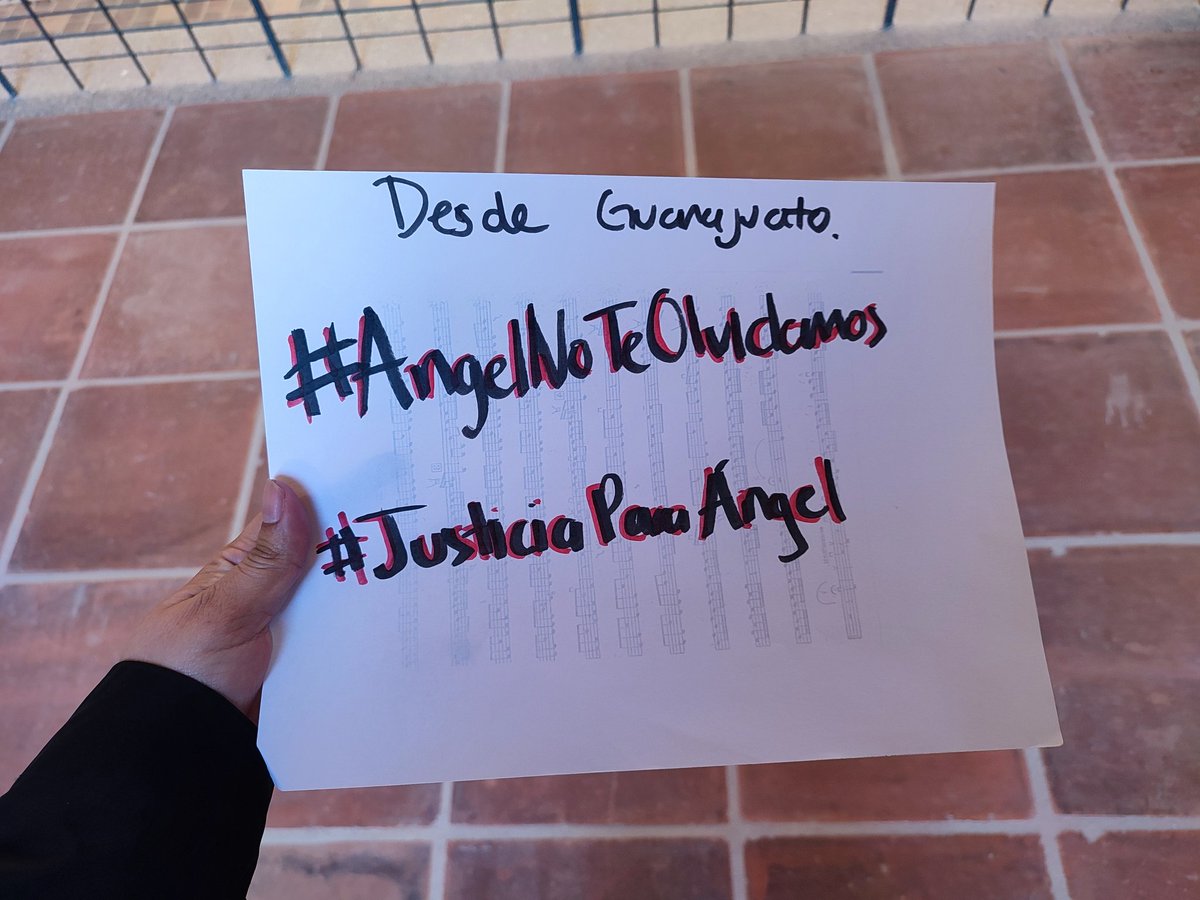 Desde Guanajuato.
#AngelNoTeOlvidamos
#JusticiaParaÁngel